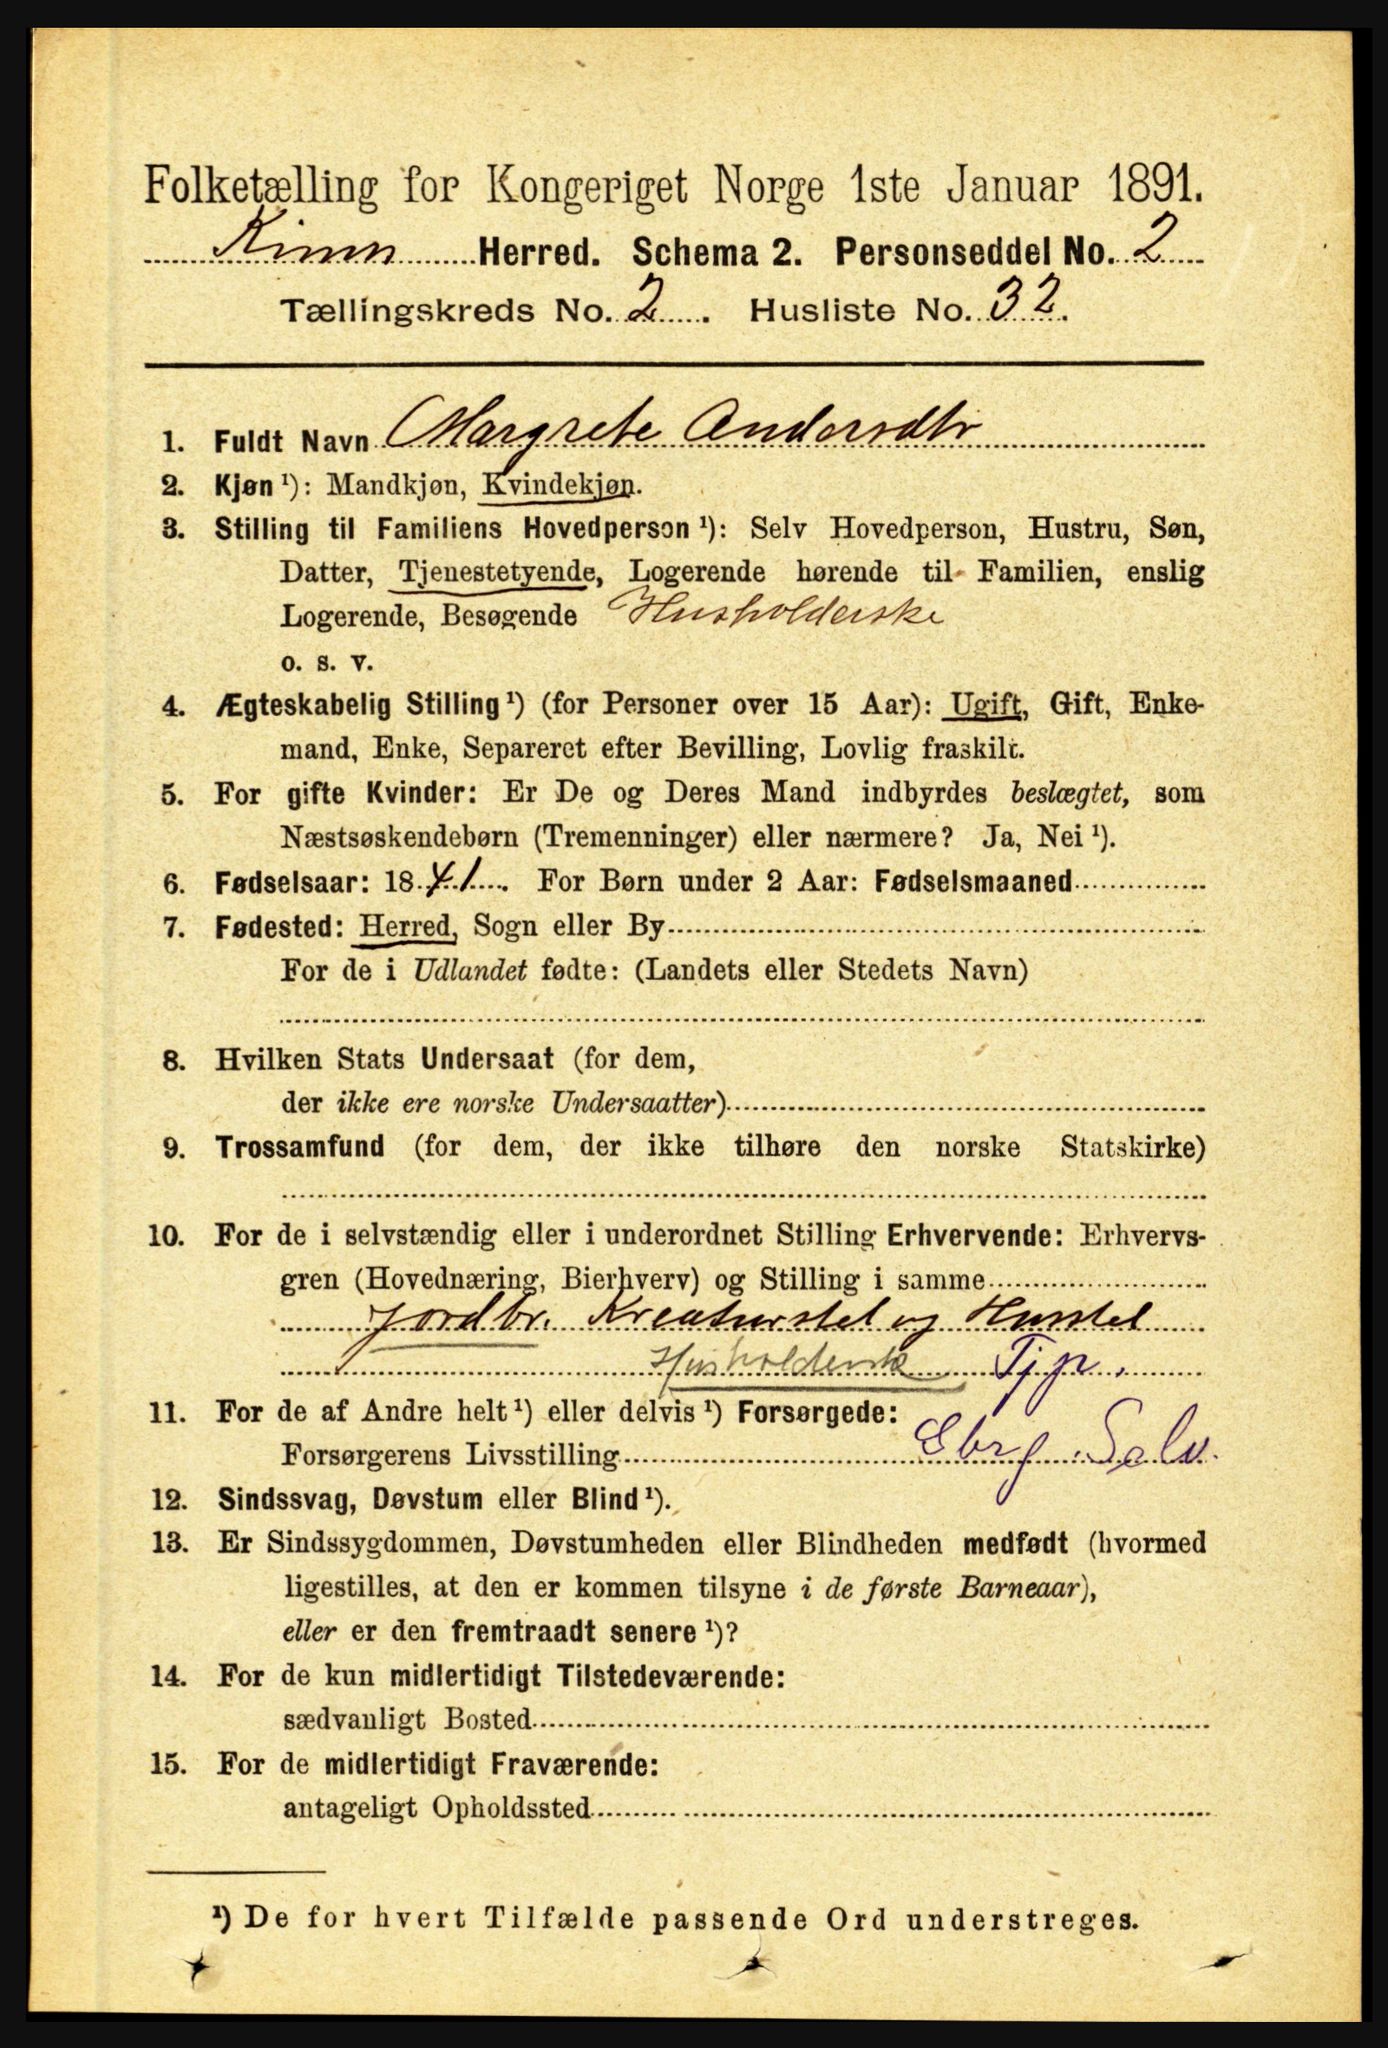 Folketælling for Kongeriget Norge 1ste Januar 1891.
Kinn Herred. Schema 2. Personseddel No. 2
Tællingskreds No. 2. Husliste No. 32.
1. Fuldt Navn Margrete Andersdtr
2. Kjøn ¹): Mandkjøn, Kvindekjøn.
3. Stilling til Familiens Hovedperson ¹): Selv Hovedperson, Hustru, Søn,
Datter, Tjenestetyende, Logerende hørende til Familien, enslig
Logerende, Besøgende Husholderske
o. s. v.
4. Ægteskabelig Stilling ¹) (for Personer over 15 Aar): Ugift, Gift, Enke-
mand, Enke, Separeret efter Bevilling, Lovlig fraskilt.
5. For gifte Kvinder: Er De og Deres Mand indbyrdes beslægtet, som
Næstsøskendebørn (Tremenninger) eller nærmere? Ja, Nei ¹).
6. Fødselsaar: 1841. For Børn under 2 Aar: Fødselsmaaned
7. Fødested: Herred, Sogn eller By
For de i Udlandet fødte: (Landets eller Stedets Navn)
8. Hvilken Stats Undersaat (for dem,
der ikke ere norske Undersaatter)
9. Trossamfund (for dem, der ikke tilhøre den norske Statskirke)
10. For de i selvstændig eller i underordnet Stilling Erhvervende: Erhvervs-
gren (Hovednæring, Bierhverv) og Stilling i samme
Jordbr. Kreaturstel og Husstel
Husholdersk Tjp.
11. For de af Andre helt ¹) eller delvis ¹) Forsørgede:
Forsørgerens Livsstilling Gbrg. Selv.
12. Sindssvag, Døvstum eller Blind ¹).
13. Er Sindssygdommen, Døvstumheden eller Blindheden medfødt (hvormed
ligestilles, at den er kommen tilsyne i de første Barneaar),
eller er den fremtraadt senere ¹)?
14. For de kun midlertidigt Tilstedeværende:
sædvanligt Bosted
15. For de midlertidigt Fraværende:
antageligt Opholdssted
¹) De for hvert Tilfælde passende Ord understreges.